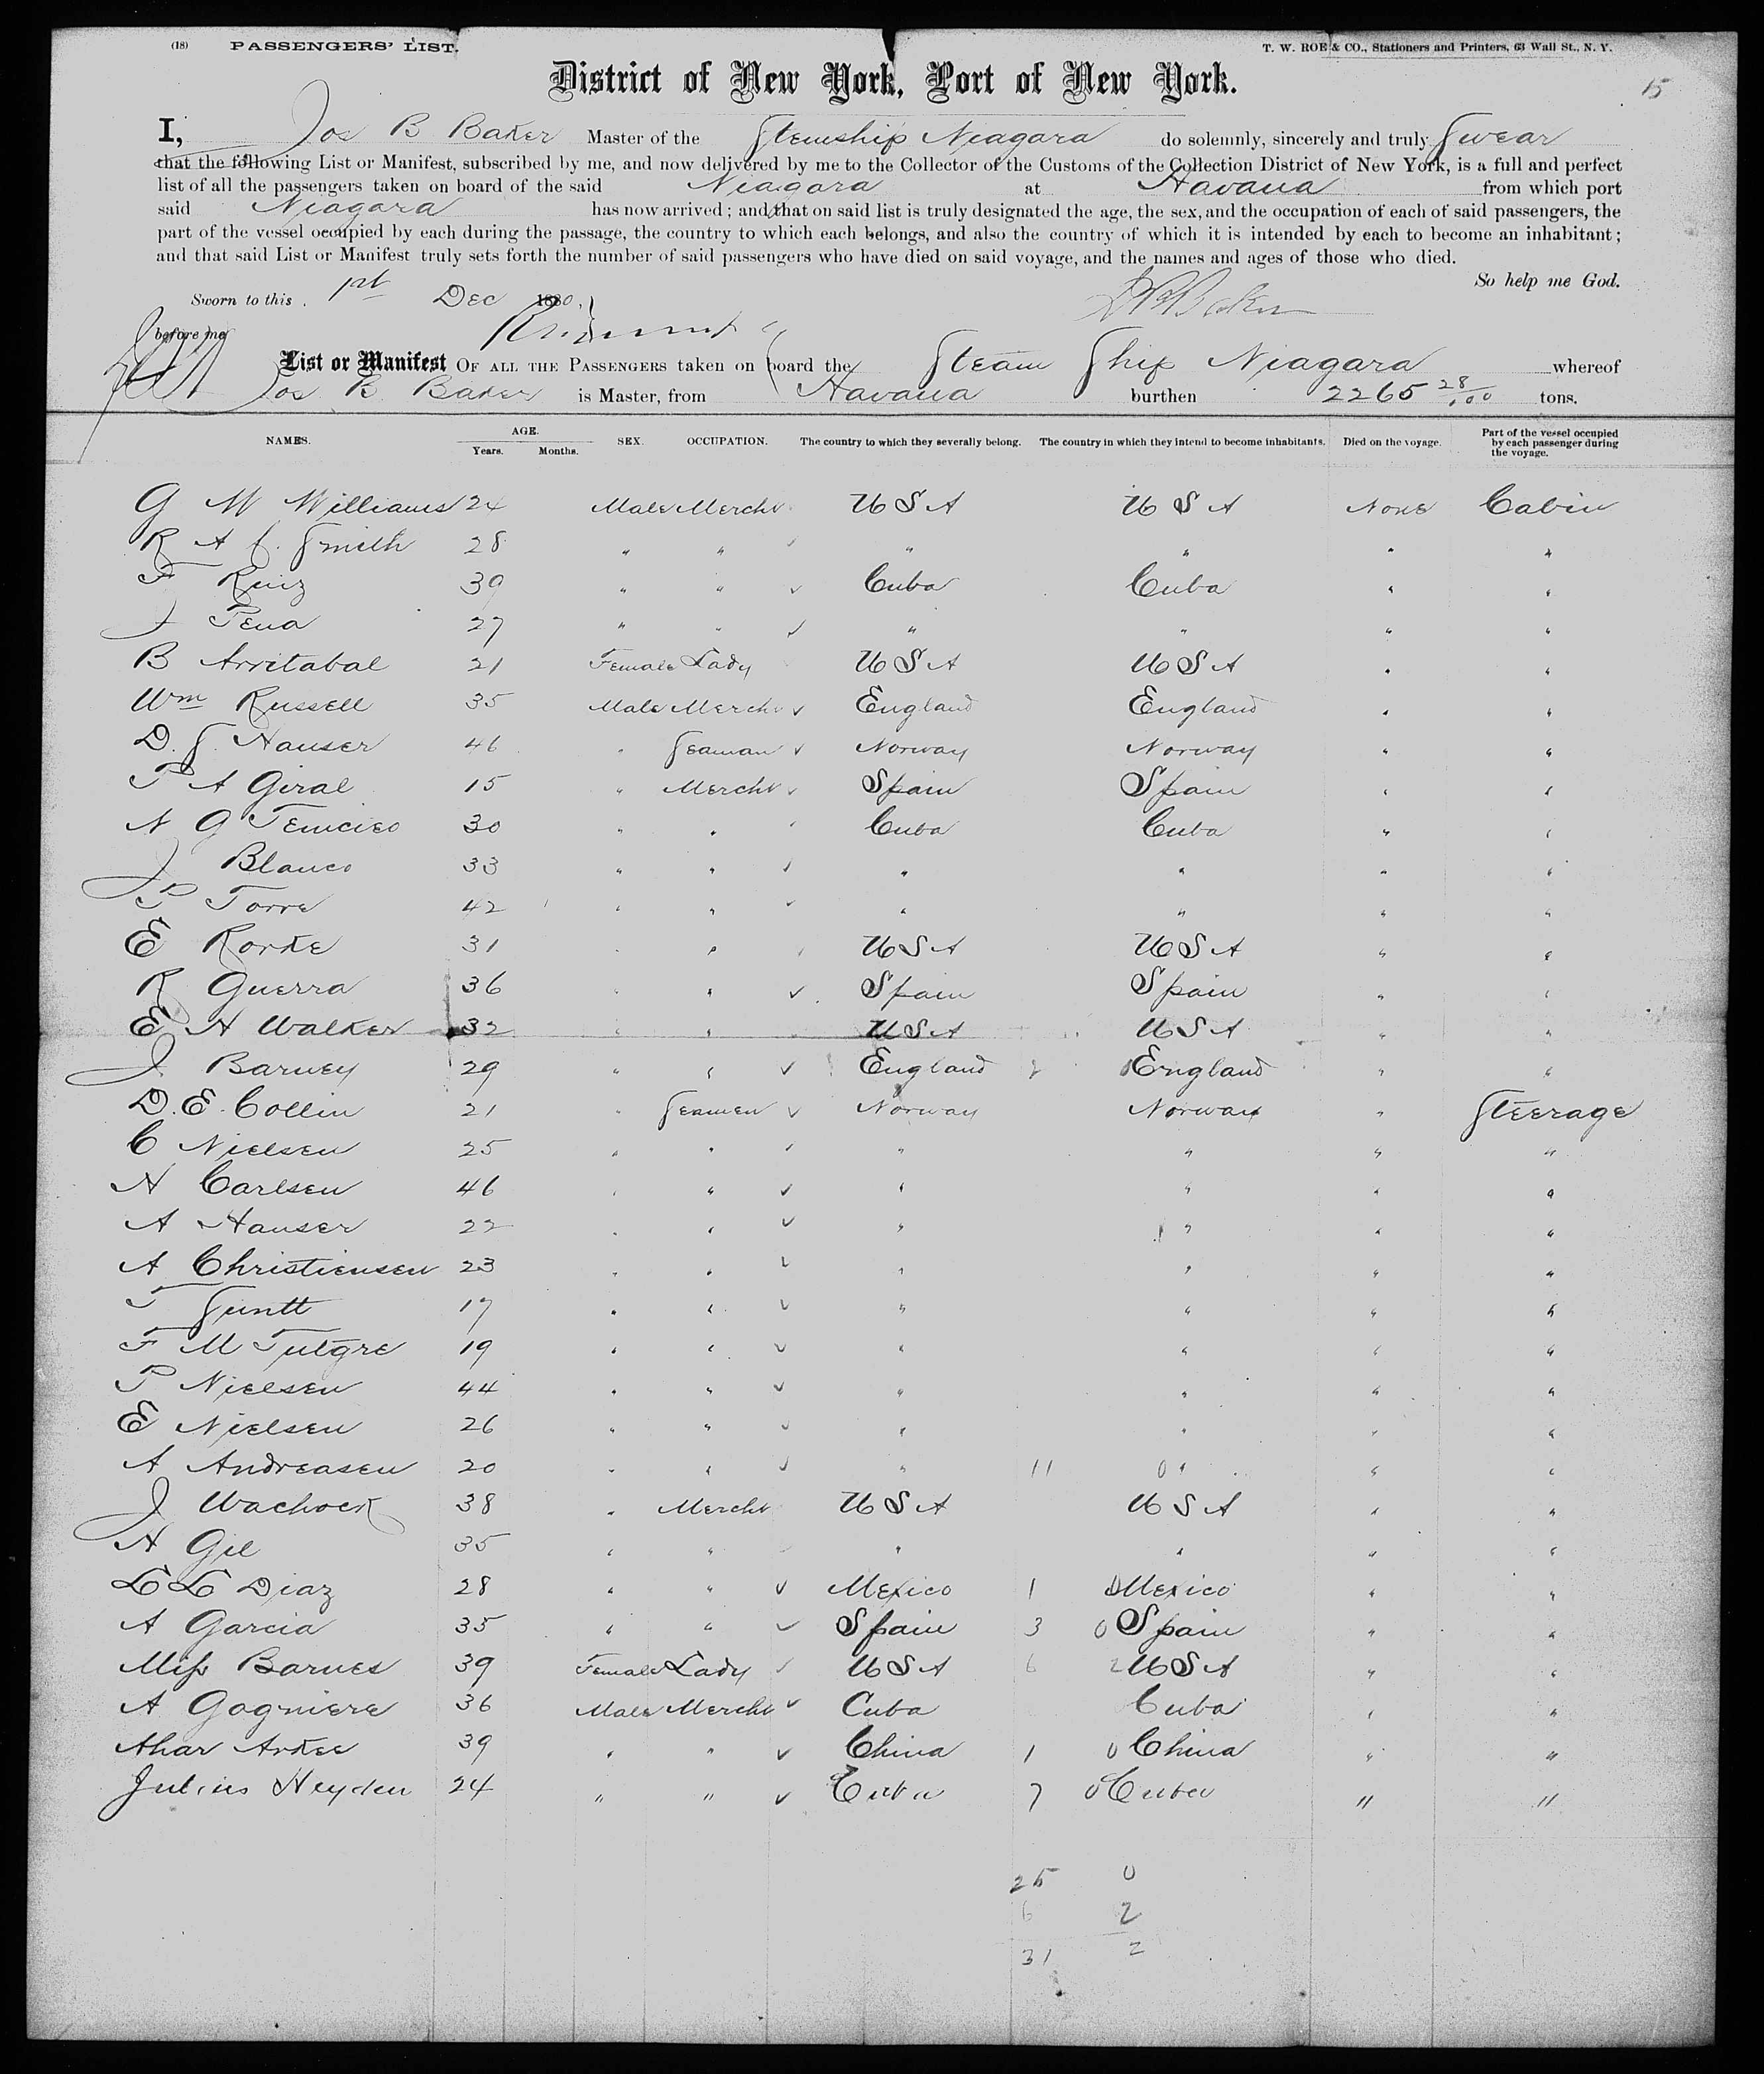 (18) PASSENGERS' LIST. T. W. ROE & CO., Stationers and Printers, 63 Wall St., N. Y.
15
District of New York, Port of New York.
I, Jos B Baker Master of the Stemship Niagara do solemnly, sincerely and truly Swear
that the following List or Manifest, subscribed by me, and now delivered by me to the Collector of the Customs of the Collection District of New York, is a full and perfect
list of all the passengers taken on board of the said Niagara at Havana from which port
said Niagara has now arrived; and that on said list is truly designated the age, the sex, and the occupation of each of said passengers, the
part of the vessel occupied by each during the passage, the country to which each belongs, and also the country of which it is intended by each to become an inhabitant;
and that said List or Manifest truly sets forth the number of said passengers who have died on said voyage, and the names and ages of those who died.
So help me God.
Sworn to this 1st Dec 1880, Baker
before me
List or Manifest OF ALL THE PASSENGERS taken on board the Steam Ship Niagara whereof
Jos B Baker is Master, from Havana burthen 2265 28/100 tons.
NAMES. AGE. Years. Months. SEX. OCCUPATION. The country to which they severally belong. The country in which they intend to become inhabitants. Died on the voyage. Part of the vessel occupied by each passenger during the voyage.
G W Williams 24 Male Mercht USA USA None Cabin
R A C. Smith 28 " " " " " "
F Ruiz 39 " " Cuba Cuba " "
J Pena 27 " " " " " "
B Arritabal 21 Female Lady USA USA " "
Wm Russell 35 Male Mercht England England " "
D. J. Hauser 46 " Seaman Norway Norway " "
P A Giral 15 " Mercht Spain Spain " "
N G 30 " " Cuba Cuba " "
J Blanco 33 " " " " " "
P Torre 42 " " " " " "
E Rorke 31 " " USA USA " "
R Guerra 36 " " Spain Spain " "
E H Walker 32 " " USA USA " "
J Barney 29 " " England England " "
D. E. Collin 21 " Seamen Norway Norway " Steerage
C Nielsen 25 " " " " " "
H Carlsen 46 " " " " " "
A Hauser 22 " " " " " "
A Christiensen 23 " " " " " "
T Suntt 17 " " " " " "
F M Tutgre 19 " " " " " "
P Nielsen 44 " " " " " "
E Nielsen 26 " " " " " "
A Andreasen 20 " " " 11 0 " " "
J Wachock 38 " Mercht USA USA " "
H Gil 35 " " " " " "
L L Diaz 28 " " Mexico 1 0 Mexico " "
A Garcia 35 " " Spain 3 0 Spain " "
Miss Barnes 39 Female Lady USA 6 2 USA " "
A Gogniere 36 Male Mercht Cuba Cuba " "
Ahar Arkee 39 " " China 1 0 China " "
Julius Heyden 24 " " Cuba 7 0 Cuba " "
25 0
6 2
31 2